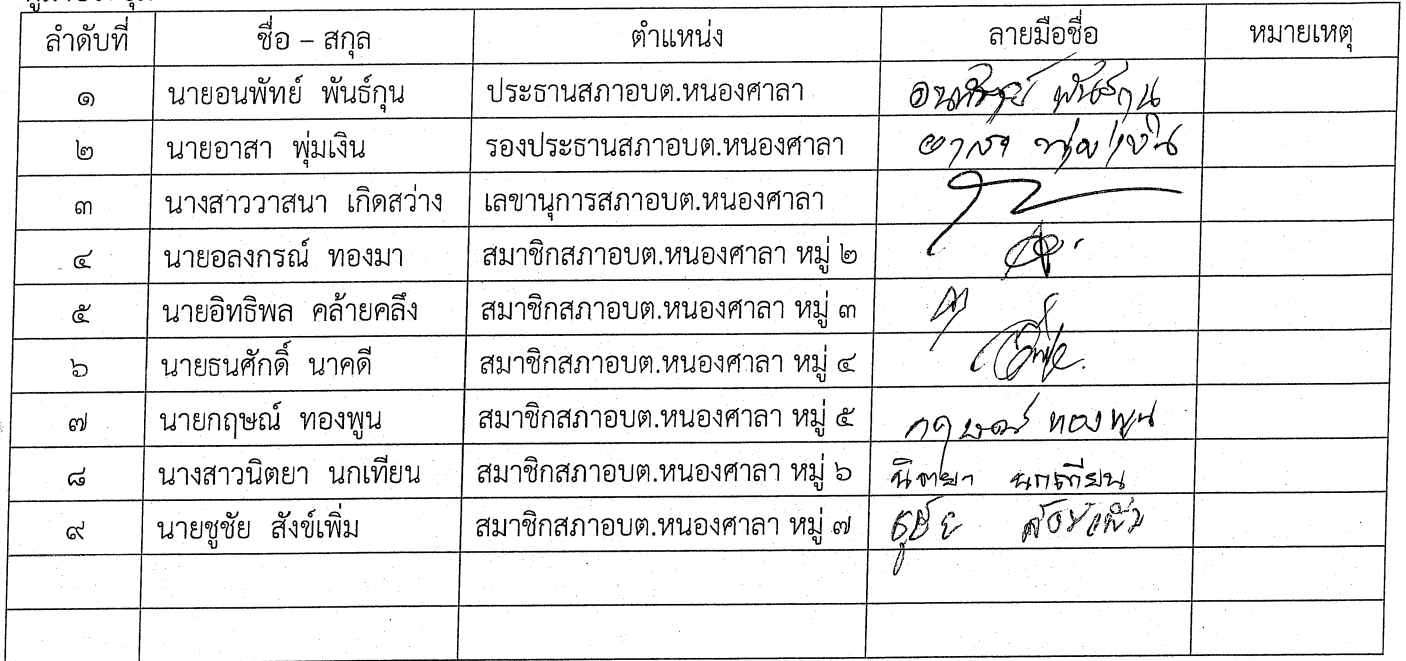 ลำดับที่ ชื่อ – สกุล ตำแหน่ง ลายมือชื่อ หมายเหตุ
๑ นายอนพัทย์ พันธ์กุน ประธานสภาอบต.หนองศาลา อนพัทย์ พันธ์กุน
๒ นายอาสา พุ่มเงิน รองประธานสภาอบต.หนองศาลา อาสา พุ่มเงิน
๓ นางสาววาสนา เกิดสว่าง เลขานุการสภาอบต.หนองศาลา
๔ นายอลงกรณ์ ทองมา สมาชิกสภาอบต.หนองศาลา หมู่ ๒
๕ นายอิทธิพล คล้ายคลึง สมาชิกสภาอบต.หนองศาลา หมู่ ๓
๖ นายธนศักดิ์ นาคดี สมาชิกสภาอบต.หนองศาลา หมู่ ๔
๗ นายกฤษณ์ ทองพูน สมาชิกสภาอบต.หนองศาลา หมู่ ๕ กฤษณ์ ทองพูน
๘ นางสาวนิตยา นกเทียน สมาชิกสภาอบต.หนองศาลา หมู่ ๖ นิตยา นกเทียน
๙ นายชูชัย สังข์เพิ่ม สมาชิกสภาอบต.หนองศาลา หมู่ ๗ ชูชัย สังข์เพิ่ม